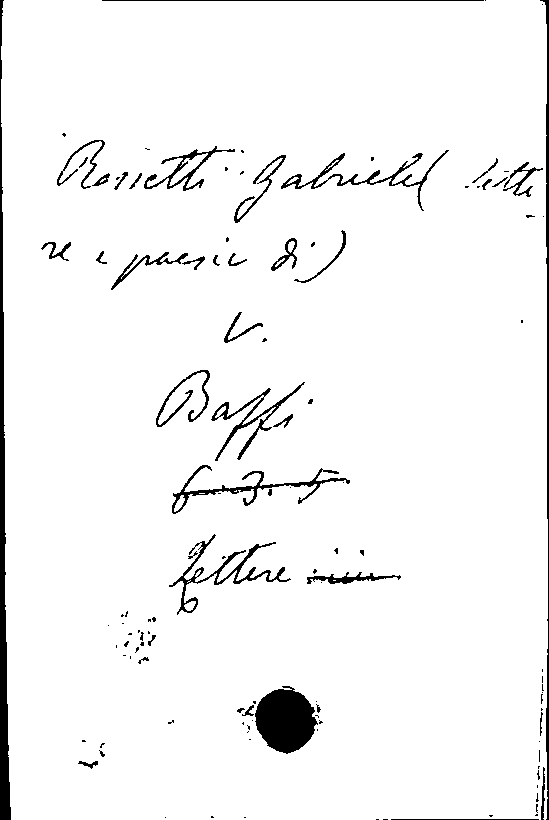 Rossetti Gabriele (lette-
re e poesie di)
V.
Baffi
6. 3. 5
Lettere